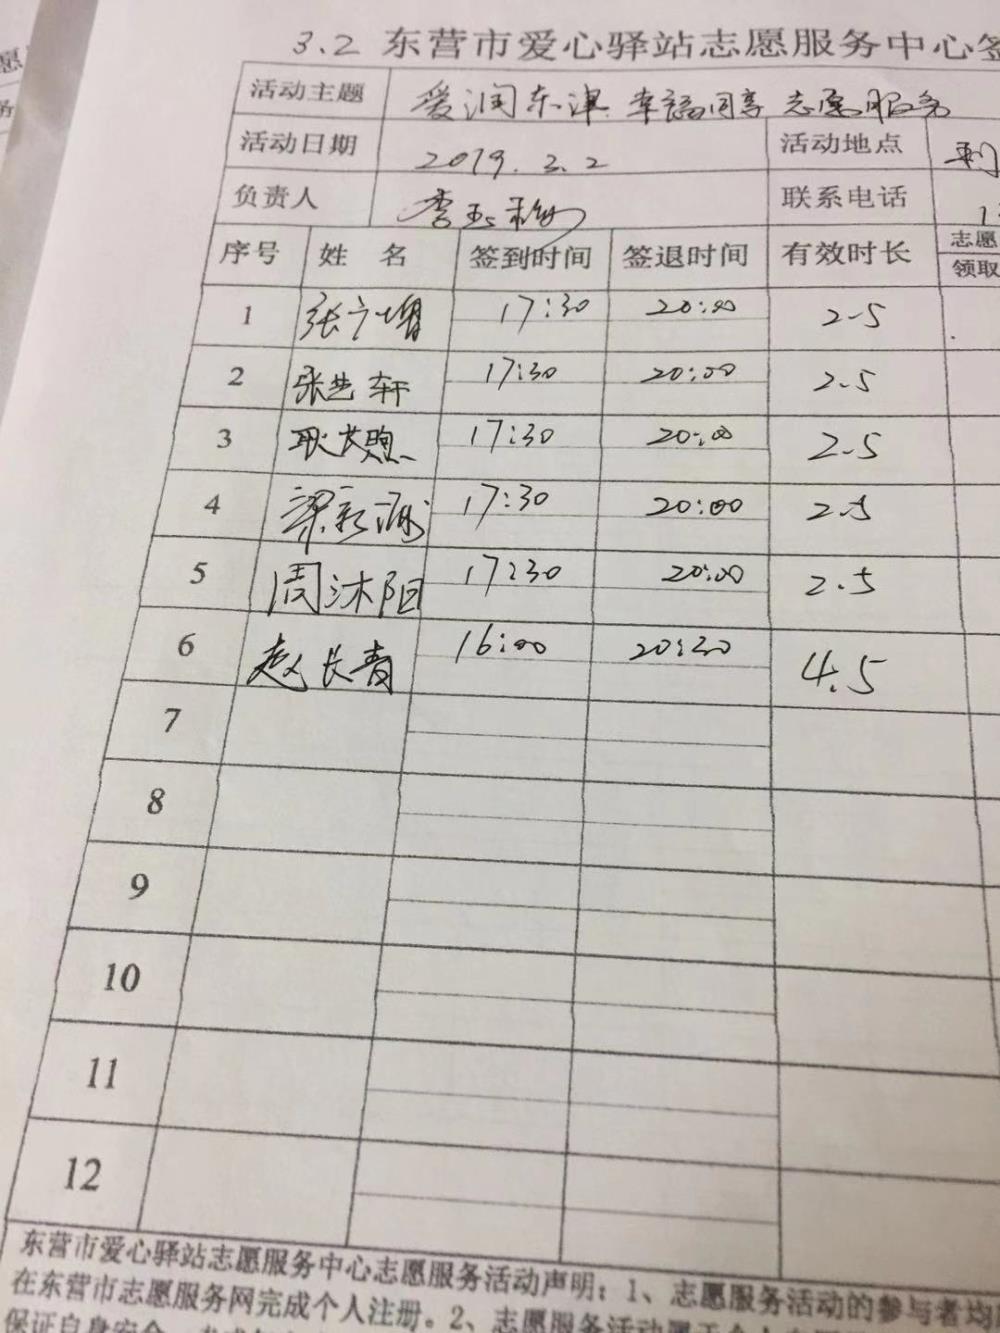 3.2 东营市爱心驿站志愿服务中心签
活动主题 爱润东津 幸福同享 志愿服务
活动日期 2019.3.2 活动地点
负责人 李玉 联系电话
序号 姓 名 签到时间 签退时间 有效时长 志愿
领取
1 张 17:30 20:00 2.5
2 张艺轩 17:30 20:00 2.5
3 耿 煦 17:30 20:00 2.5
4 梁 17:30 20:00 2.5
5 周沐阳 17:30 20:00 2.5
6 赵长青 16:00 20:30 4.5
7
8
9
10
11
12
东营市爱心驿站志愿服务中心志愿服务活动声明：1、志愿服务活动的参与者均
在东营市志愿服务网完成个人注册。2、志愿服务活动属于个人
保证自身安全